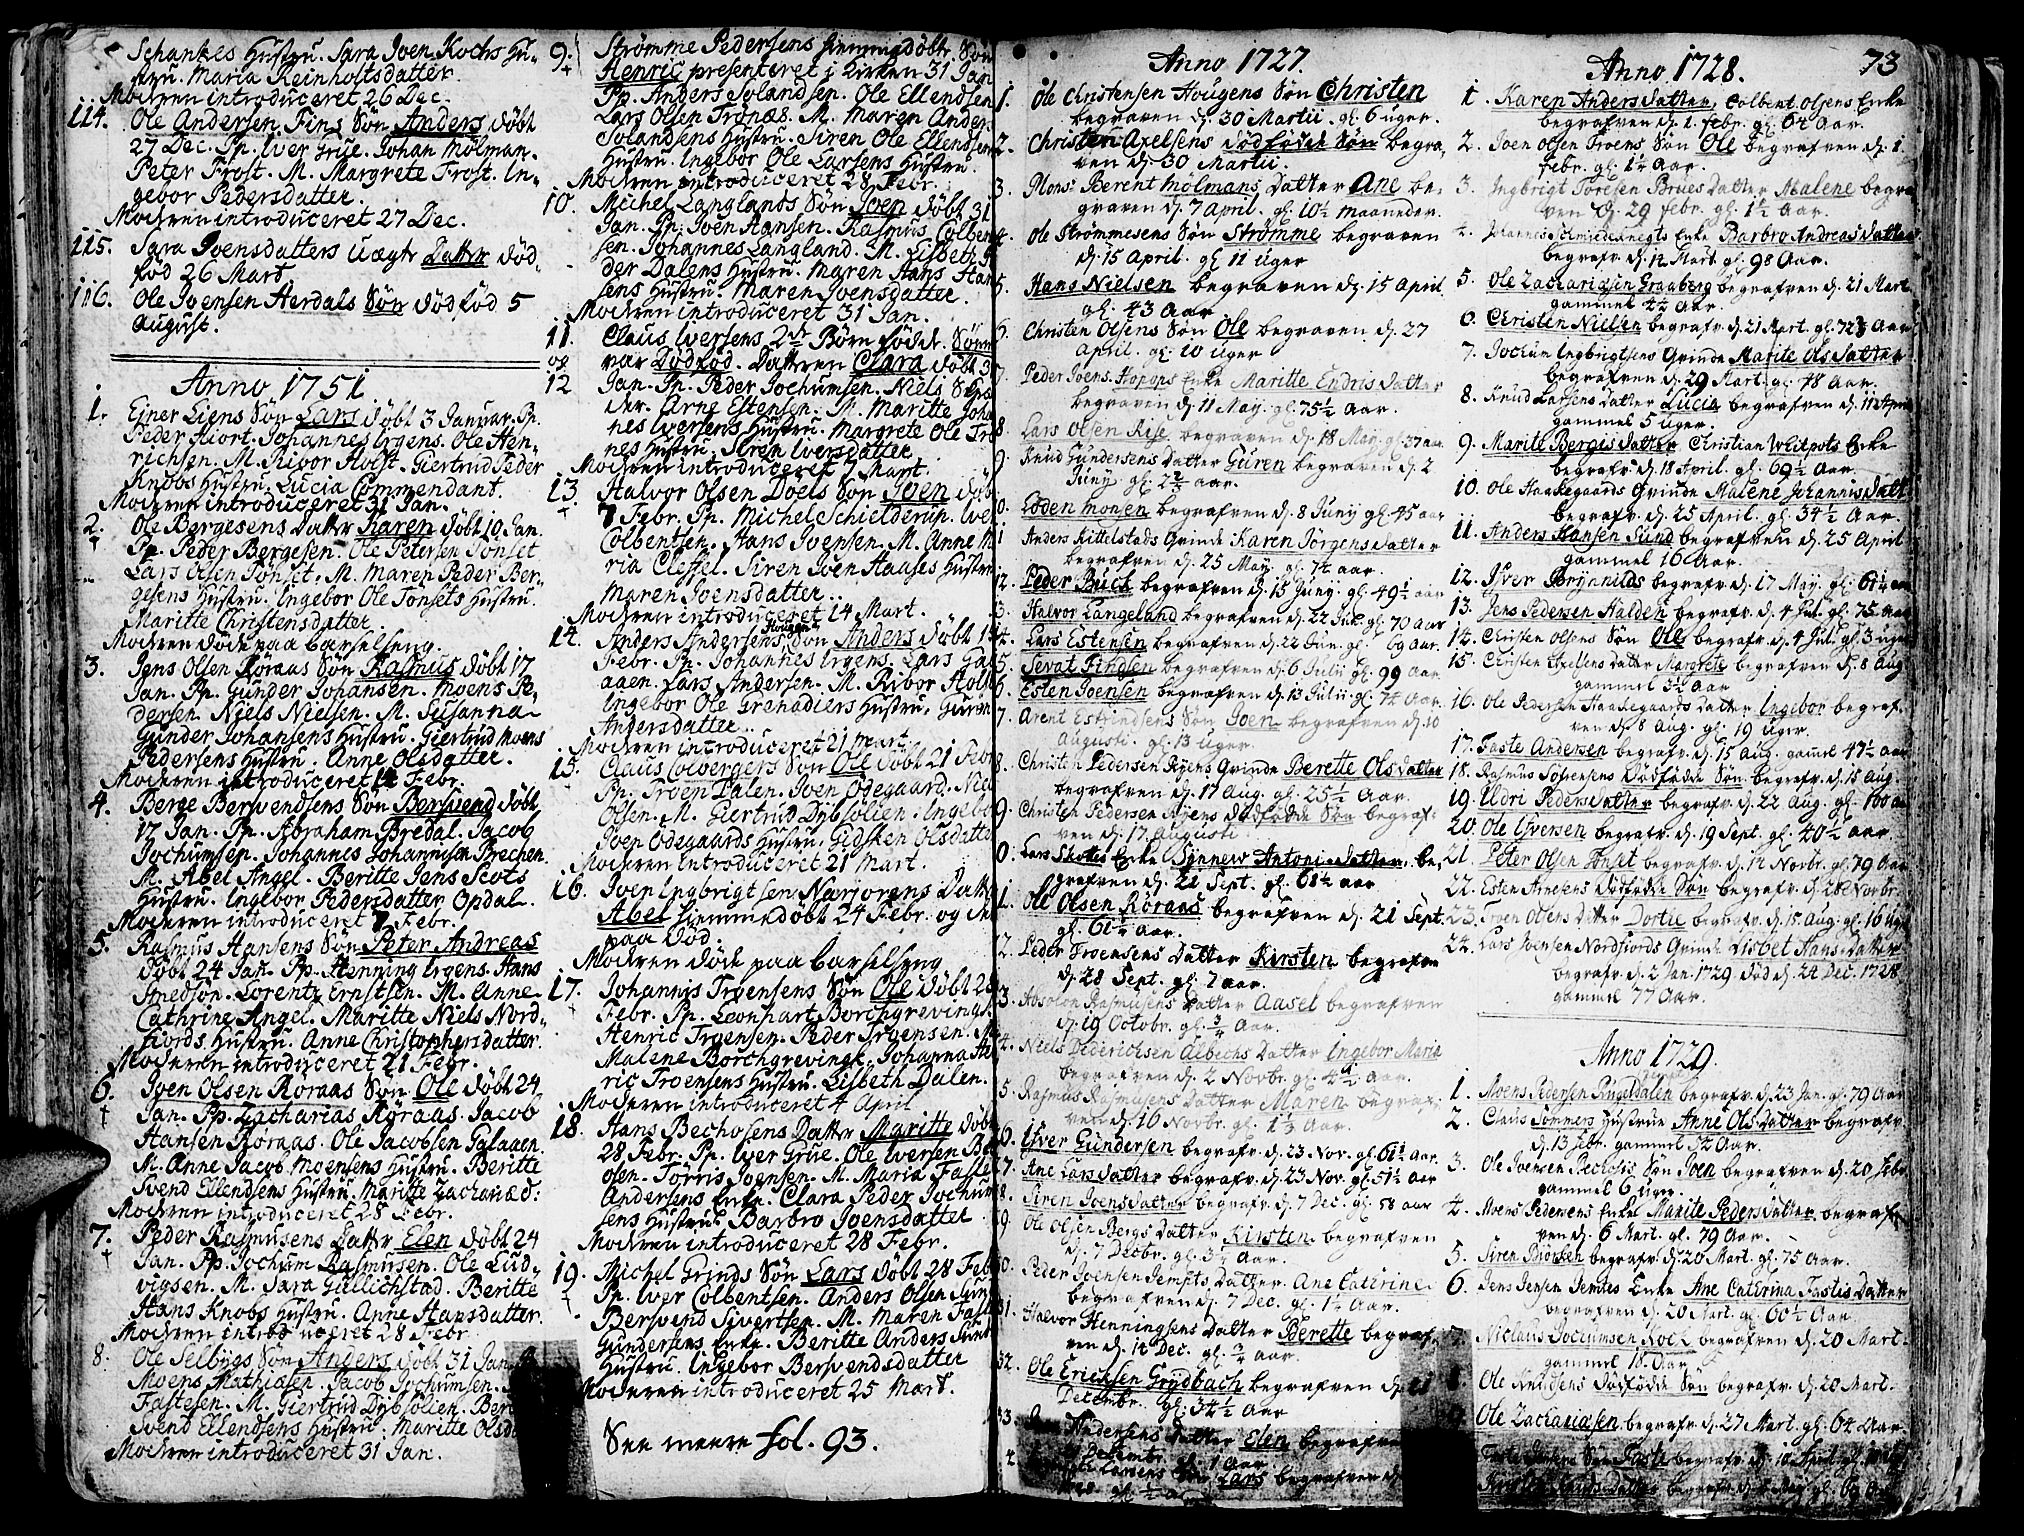 Schankes Hustru. Sara Joen Kochs Hu-
stru. Maria Reinholtsdatter.
Modren introduceret 26 Dec.
114. Ole Andersen Fins Søn Anders døbt
27 Dec. Pp. Iver Grue. Johan Mølman.
Peter Frost. M. Margrete Frost. In-
gebor Pedersdatter.
Modren introduceret 27 Dec.
115. Sara Joensdatters uægte Datter død-
fød 26 Mart
116. Ole Joensen Herdals Søn dødfød 5
August.
Anno 1751
1. Ejner Liens Søn Lars døbt 3 Januar. Pp.
Peder Hiort. Johannes Irgens. Ole Hen-
richsen. M. Ribor Holst. Giertrud Peder
Knobs Hustru. Lucia Commendant.
Modren introduceret 31 Jan.
2. Ole Børgesens Datter Karen døbt 10 Jan.
Pp. Peder Bergesen. Ole Petersen Tønset
Lars Olsen Tønset. M. Maren Peder Ber-
gesens Hustru. Ingebor Ole Tonsets Hustru.
Maritte Christensdatter.
Modren døde paa barselseng.
3. Jens Olsen Røraas Søn Rasmus døbt 17
Jan. Pp. Gunder Johansen. Moens Pe-
dersen. Niels Nielsen. M. Susanna
Gunder Johansens Hustru. Giertrud Moens
Pedersens Hustru. Anne Olsdatter.
Modren introduceret 14 Febr.
4. Berge Bersvendsens Søn Bersvend døbt
17 Jan. Pp. Abraham Bredal. Jacob
Jochumsen. Johannes Johannisen Brechen.
M. Abel Angel. Beritte Jens Scots
Hustru. Ingebor Pedersdatter Opdal.
Modren introduceret 7 Febr.
5. Rasmus Hansens Søn Peter Andreas
døbt 24 Jan. Pp. Henning Irgens. Hans
Smedsøn. Lorentz Ernstsen. M. Anne
Cathrine Angel. Maritte Niels Nord-
fiords Hustru. Anne Christophersdatter.
Modren introduceret 21 Febr.
6. Joen Olsen Roraas Søn Ole døbt 24
Jan. Pp. Zacharias Røraas. Jacob
Hansen Røraas. Ole Jacobsen Galaaen.
M. Anne Jacob Moensens Hustru. Beritte
Svend Ellendsens Hustru. Maritte Zachariæd:
Modren introduceret 28 Febr.
7. Peder Rasmusens Datter Elen døbt 24
Jan. Pp. Jochum Rasmusen. Ole Lud-
vigsen. M. Sara Gullichstad. Beritte
Hans Knobs Hustru. Anne Hansdatter.
Modren introduceret 28 Febr.
8. Ole Selbygs Søn Anders døbt 31 Jan.
Moens Mathiasen. Jacob Jochumsen.
Fastesen. M. Giertrud Dybsølien.
Svend Ellendsens Hustru. Maritte Olsd
Modren introduceret 31 Jan.
9. Strømme Pedersens hiemmedøbte Søn
Henric presenteret i Kirken 31 Jan
Pp. Anders Solandsen. Ole Ellendsen
Lars Olsen Trønæs. M. Maren Ander
Solandsens Hustru. Siren Ole Ellendsen
Hustru. Ingebor Ole Larsens Hustru.
Modren introduceret 28 Febr.
10. Michel Langlands Søn Joen døbt 31
Jan. Pp. Joen Hansen. Rasmus Colben
sen. Johannes Langland. M. Lisbeth
der Dalens Hustru. Maren Hans Han
sens Hustru. Maren Joensdatter.
Modren introduceret 31 Jan.
11. Claus Iversens 2de Børn fødde. Sønn
og var Dødfød. Datteren Clara døbt 3
12 Jan. Pp. Peder Jochumsen. Niels
Arne Estensen. M. Maritte Joha
nes Iversens Hustru. Margrete Ole
nes Hustru. Siren Iversdatter
Modren introduceret 7 Mart.
13. Halvor Olsen Doels Søn Joen døbt
7 Febr. Pp. Michel Schielderup. Iver
Colbentsen. Hans Joensen. M. Anne M
ria Cleffel. Siren Joen Haases Hustru
Maren Joensdatter.
Modren introduceret 14 Mart.
14. Anders Andersens Hougen Søn Anders døbt 14
Febr. Pp. Johannes Irgens. Lars Gal
aaen. Lars Andersen. M. Ribor Hol
Ingebor Ole Grenadiers Hustru. Guren
Andersdatter.
Modren introduceret 21 Mart.
15. Claus Solbergers Søn Ole døbt 21 Febr
Pp. Troen Dalen. Joen Ødegaard. Niel
Olsen. M. Giertrud Dybsølien. Ingebor
Joen Ødegaards Hustru. Gidsken Olsdatte
Modren introduceret 21 Mart.
16. Joen Ingbrigtsen Narjorens Datter
Abel hiemmedøbt 24 Febr. og
paa død.
Modren døde paa barselseng
17. Johannis Troensens Søn Ole døbt 28
Febr. Pp. Leonhart Borchgrevingk.
Henric Troensen. Peder Troensen. M
Malene Borchgrevingk. Johanna He
ric Troensens Hustru. Lisbeth Dalen.
Modren introduceret 4 April
18. Hans Bechosens Datter Maritte døbt
28 Febr. Pp. Iver Grue. Ole Iversen
olsen. Tørris Joensen. M. Maria Faste
Andersens Enke. Clara Peder Jochum
sens Hustru. Barbro Joensdatter.
Modren introduceret 28 Febr.
19. Michel Grinds Søn Lars døbt 28 Feb
Pp. Iver Colbentsen. Anders Olsen
Bersvend Sivertsen. M. Maren Faste
Gundersens Enke. Beritte Anders
Hustru. Ingebor Bersvendsdatter
Modren introduceret 25 Mart.
See meere fol. 93.
Anno 1727.
1. Ole Christensen Hougens Søn Christen
begraven d. 30 Martii. gl. 6 uger.
2. Christen Axelsens dødfødde Søn begra-
ven d. 30 Martii.
3. Mons. Berent Mølmans Datter Ane be-
graven d. 7 April. gl. 10½ maaneder.
4. Ole Strømmesens Søn Strømme begraven
d. 15 April. gl. 11 uger
5. Hans Nielsen begraven d. 15 April
gl. 43 Aar
6. Christen Olsens Søn Ole begraven d. 27
April. gl. 10 uger
7. Peder Joens. Hopops Enke Maritte Endris Datter
begraven d. 11 May. gl. 75½ Aar.
8. Lars Olsen Rise begraven d. 18 May. gl. 37 aar
9. Knud Gundersens Datter Guren begraven d. 2
Juny gl. 2¾ aar.
10. Loden Monsen begrafven d. 8 Juny gl. 45 aar
11. Anders Kittelstads Qvinde Karen Jørgensdatter
begrafven d. 25 May. gl. 74 aar.
12. Peder Buch begrafven d. 15 Juny. gl. 49½ aar
13. Halvor Langeland begrafven d. 22 Jul. gl. 70 aar
14. Lars Estensen begrafven d. 22 Jun. gl. 69 aar.
15. Sevat Findsen begrafven d. 6 Julii gl. 99 aar
16. Esten Joensen begrafven d. 13 Julii. gl. 74 aar.
17. Arent Estrindsens Søn Joen begrafven d. 10
Augusti. gl. 13 uger.
18. Christen Pedersen Ryens Qvinde Berette Olsdatter
begrafven d. 17 Aug. gl. 25½ Aar.
19. Christen Pedersen Ryens dødfødde Søn begraf-
ven d. 17 Augusti.
20. Lars Skottes Enke Synnew Antonisdatter be-
grafven d. 21 Sept. gl. 68½ aar
21. Ole Olsen Røraas begrafven d. 21 Sept.
gl. 61½ aar.
22. Peder Troensens Datter Kirsten begrafven
d. 28 Sept. gl. 7 aar.
23. Absolon Rasmusens Datter Aasel begrafven
d. 19 Octobr. gl. ¾ Aar.
24. Niels Dederichsen Albechs Datter Ingebor Maria
begrafven d. 2 Novbr. gl. 4½ Aar.
25. Rasmus Rasmusens Datter Maren begraf-
ven d. 16 Novbr. gl. 1⅓ Aar.
26. Ifver Gundersen begrafv. d. 23 Nov. gl. 61½ aar.
27. Ane Larsdatter begrafv. d. 23 Nov. gl. 51½ aar
28. Siren Joensdatter begrafv. d. 7 Dec. gl. 58 aar
29. Ole Olsen Bergs Datter Kirsten begrafven
d. 7 Decbr. gl. 3½ Aar.
30. Peder Joensen Jempts Datter Ane Catrine
begrafven d. 7 Dec. gl. 1½ Aar.
31. Halvor Henningsens Datter Berette begraf-
ven d. 14 Dec. gl. ¾ aar.
32. Ole Ericksen Grydbach begrafven d. 21
Decembr. gl. 34½ Aar
33. Andersens Datter Elen begrafven
Decembr. gl. 1 Aar.
Larsens Søn Lars begrafven d.
gl. ½ aar
Anno 1728. 73
1. Karen Andersdatter, Colbent Olsens Enke
begrafven d. 1. febr. gl. 64 Aar.
2. Joen Olsen Troens Søn Ole begrafven d. 1.
febr. gl. 1½ Aar.
3. Ingbrigt Toresen Brues Datter Malene begra
ven d. 29 febr. gl. 1½ Aar.
4. Johannes Schmiedeknegts Enke Barbro Andreasdatter
begrafv. d. 14 Mart. gl. 98 Aar.
5. Ole Zachariasen Graaberg begrafven d. 21 Mart.
gammel 44½ Aar.
6. Christen Nielsen begrafv. d. 21 Mart. gl. 72½ Aar
7. Jochum Ingbrigtsens Qvinde Marite Olsdatter
begrafven d. 29 Mart. gl. 48 Aar.
8. Knud Larsens Datter Lucia begrafven d. 11 April
gammel 5 uger.
9. Marite Bergisdatter Christian Weitpots Enke
begrafv d. 18 April. gl. 69½ Aar.
10. Ole Haakegaards Qvinde Malene Johannisdatt
begrafv. d. 25 April. gl. 34½ Aar.
11. Anders Hansen Sund begrafven d. 25 April
gammel 16 Aar.
12. Ifver Brynnilds begrafv. d. 17 May. gl. 61½ aar
13. Jens Pedersen Halden begrafv. d. 4 Jul. gl. 75 aar
14. Christen Olsens Søn Ole begrafv. d. 4 Jul. gl. 3 uger
15. Christen Axelsens Datter Margrete begrafven d. 8 Aug
gammel 3½ Aar
16. Ole Pedersen Haakegaards Datter Ingebor begraf-
ven d. 8 Aug. gl. 19 uger.
17. Faste Andersen begrafv. d. 15 Aug. gammel 47½ aar
18. Rasmus Søfrensens dødfødde Søn begrafv. d. 15 Aug.
19. Eldri Pedersdatter begrafv. d. 22 Aug. gl. 100 aar
20. Ole Ifversen begrafv. d. 19 Sept. gl. 40½ aar.
21. Peter Olsen Tonset begrafv. d. 14 Novbr. gl. 79 Aar
22. Esten Arnesens dødfødde Søn begrafv. d. 28 Novbr.
23. Troen Olsens Datter Dortie begrafv. d. 15 Aug. gl. 16 uger
24. Lars Joensen Nordfjords Qvinde Lisbet Hansdatter
begrafv. d. 2 Jan. 1729 død d. 24 Dec. 1728
gammel 77 Aar.
Anno 1729.
1. Moens Pedersen Singeldalen begrafv. d. 23 Jan. gl. 79 Aar.
2. Claus Sommers Hustrue Anne Olsdatter begrafv.
d. 13 febr. gammel 54 Aar.
3. Ole Joensen Bechosis Søn Joen begrafven d. 20 febr.
gammel 6 uger.
4. Moens Pedersens Enke Marite Pedersdatter begraf-
ven d. 6 Mart. gl. 79 Aar.
5. Siren Biørken begrafv. d. 20 Mart. gl. 75 Aar.
6. Jens Jensen Jemtes Enke Ane Catirina Fastisdatter
begrafven d. 20 Mart. gl. 60½ Aar.
7. Niclaus Jochumsen begrafven d. 20 Mart.
gammel 18 Aar.
8. Ole Knudsens dødfødde Søn begrafv. d. 20 Mart.
9. Ole Zachariasen begrafv. d. 27 Mart. gl. 64 Aar.
Søn Faste begrafv. d. 10 April gl.
begrafv. d.